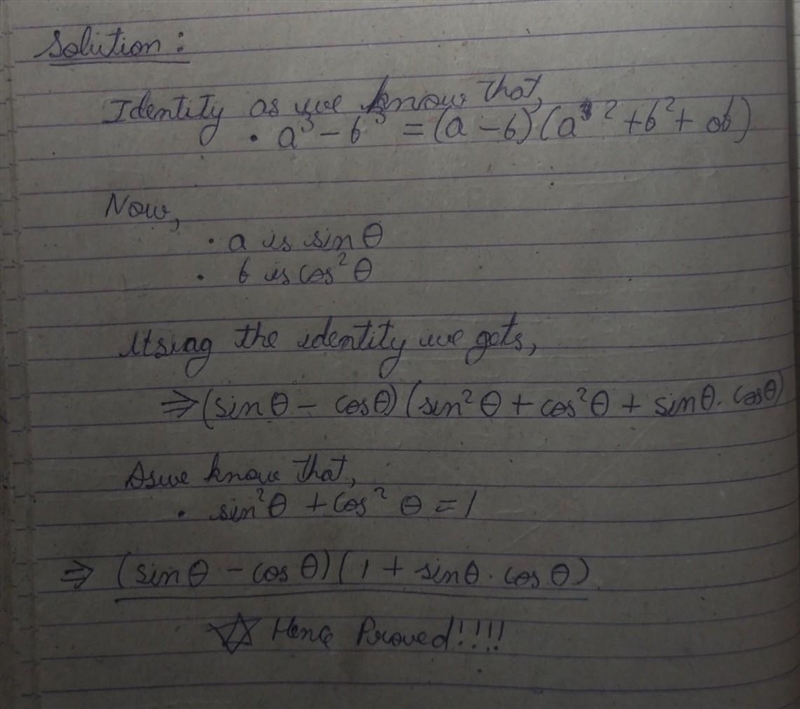 Solution:
Identity as we know that,
• a³ - b³ = (a - b)(a² + b² + ab)
Now,
• a is sin θ
• b is cos² θ
Using the identity we gets,
⇒ (sin θ - cos θ)(sin² θ + cos² θ + sin θ. cos θ)
As we know that,
• sin² θ + cos² θ = 1
⇒ (sin θ - cos θ)(1 + sin θ. cos θ)
☆ Hence Proved!!!!